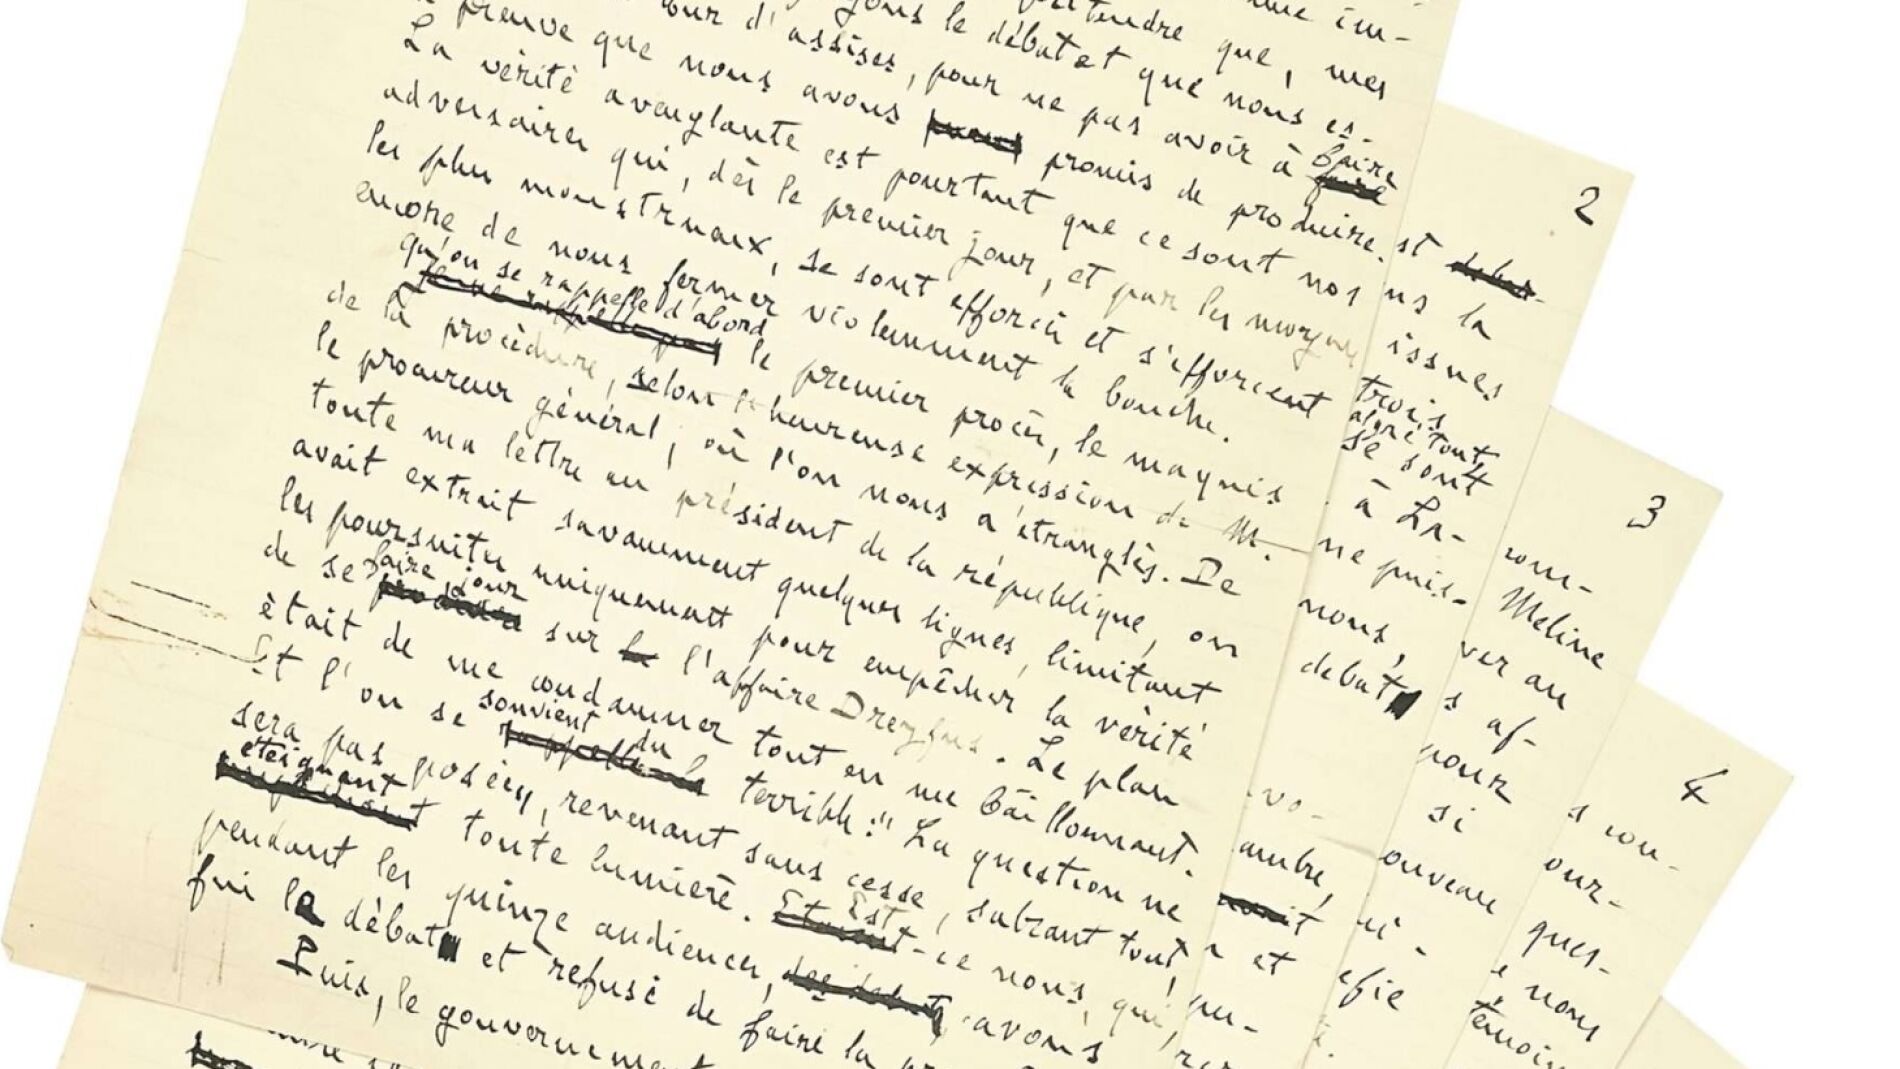 prétendre que, mes
le débat et que nous es-
cour d'assises, pour ne pas avoir à faire
preuve que nous avons promis de produire.
La vérité aveuglante est pourtant que ce sont nos
adversaires qui, dès le premier jour, et par les moyens
les plus monstrueux, se sont efforcés et s'efforcent
encore de nous fermer violemment la bouche.
qu'on se rappelle d'abord
le premier procès, le maquis
de la procédure, selon heureuse expression de M.
le procureur général, où l'on nous a étranglés. De
toute ma lettre au président de la république, on
avait extrait savamment quelques lignes, limitant
les poursuites uniquement pour empêcher la vérité
de se faire jour sur l'affaire Dreyfus. Le plan
était de me condamner tout en me bâillonnant.
Et l'on se souvient du terrible: "La question ne
sera pas posée", revenant sans cesse, sabrant tout,
éteignant toute lumière. Est-ce nous, qui,
pendant les quinze audiences, avons
fui le débat et refusé de faire la
Puis, le gouvernement
2
st
ns la
issues
trois
se sont
à La-
ne puis-
nous,
débat
3
Meline
ver au
s af-
pour
si
ouveau
4
s con-
our-
ques-
nous
témoin